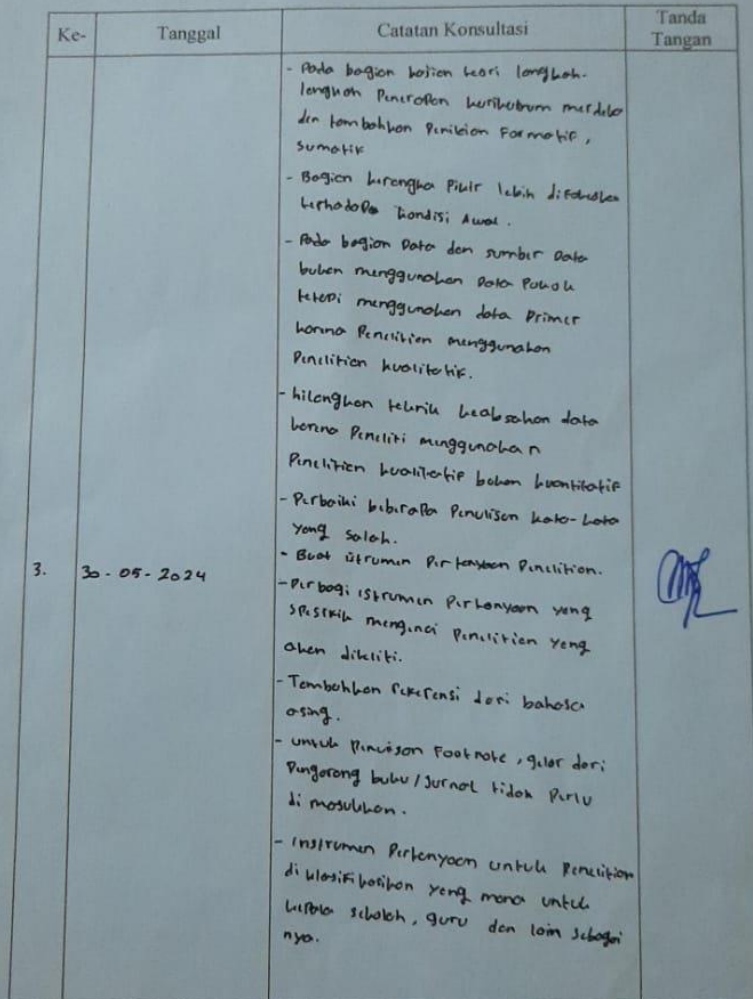 Ke-
Tanggal
Catatan Konsultasi
Tanda
Tangan
- Pada bagian kajian teori langkah-
langkah Penerapan kurikulum merdeka
dan tambahkan Penilaian Formatif,
Sumatif
- Bagian kerangka Pikir lebih difokuskan
terhadap kondisi Awal.
- Pada bagian Data dan sumber Data
bukan menggunakan Data Pokok
tetapi menggunakan data Primer
karena Penelitian menggunakan
Penelitian kualitatif.
- hilangkan teknik keabsahan data
karena Peneliti menggunakan
Penelitian kualitatif bukan kuantitatif
- Perbaiki beberapa Penulisan kata-kata
yang salah.
- Buat istrumen Pertanyaan Penelitian.
3.
30-05-2024
- Perbagi istrumen Pertanyaan yang
spesifik mengenai Penelitian yang
akan diteliti.
- Tambahkan referensi dari bahasa
asing.
- untuk Penulisan Footnote, gelar dari
Pengarang buku/Jurnal tidak Perlu
di masukkan.
- Instrumen Pertanyaan untuk Penelitian
di klasifikasikan yang mana untuk
kepala sekolah, guru dan lain sebagai
nya.